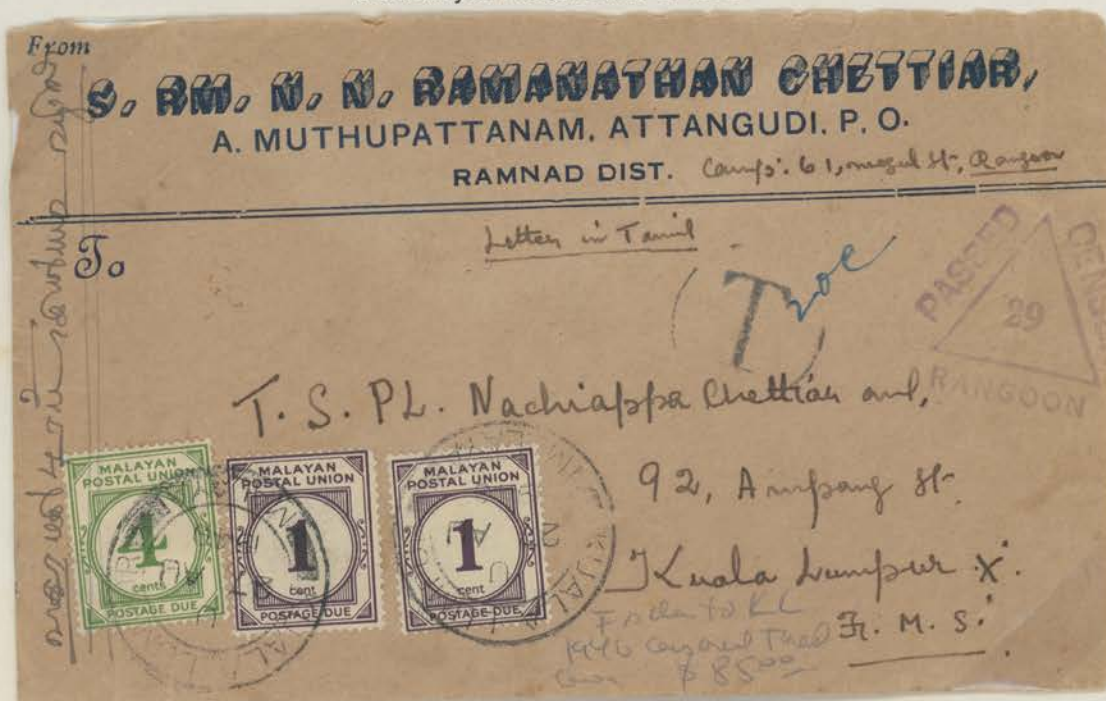 From
S. RM. N. N. RAMANATHAN CHETTIAR,
A. MUTHUPATTANAM, ATTANGUDI. P. O.
RAMNAD DIST. Camp: 61, mogul St, Rangoon
To
Letter in Tamil
T 20c
PASSED
CENSOR
29
RANGOON
T. S. PL. Nachiappa Chettiar and,
92, Ampang St.
Kuala Lumpur X.
F. M. S.
MALAYAN
POSTAL UNION
4
cents
POSTAGE DUE
MALAYAN
POSTAL UNION
1
cent
POSTAGE DUE
MALAYAN
POSTAL UNION
1
cent
POSTAGE DUE
to KL
$ 85.00